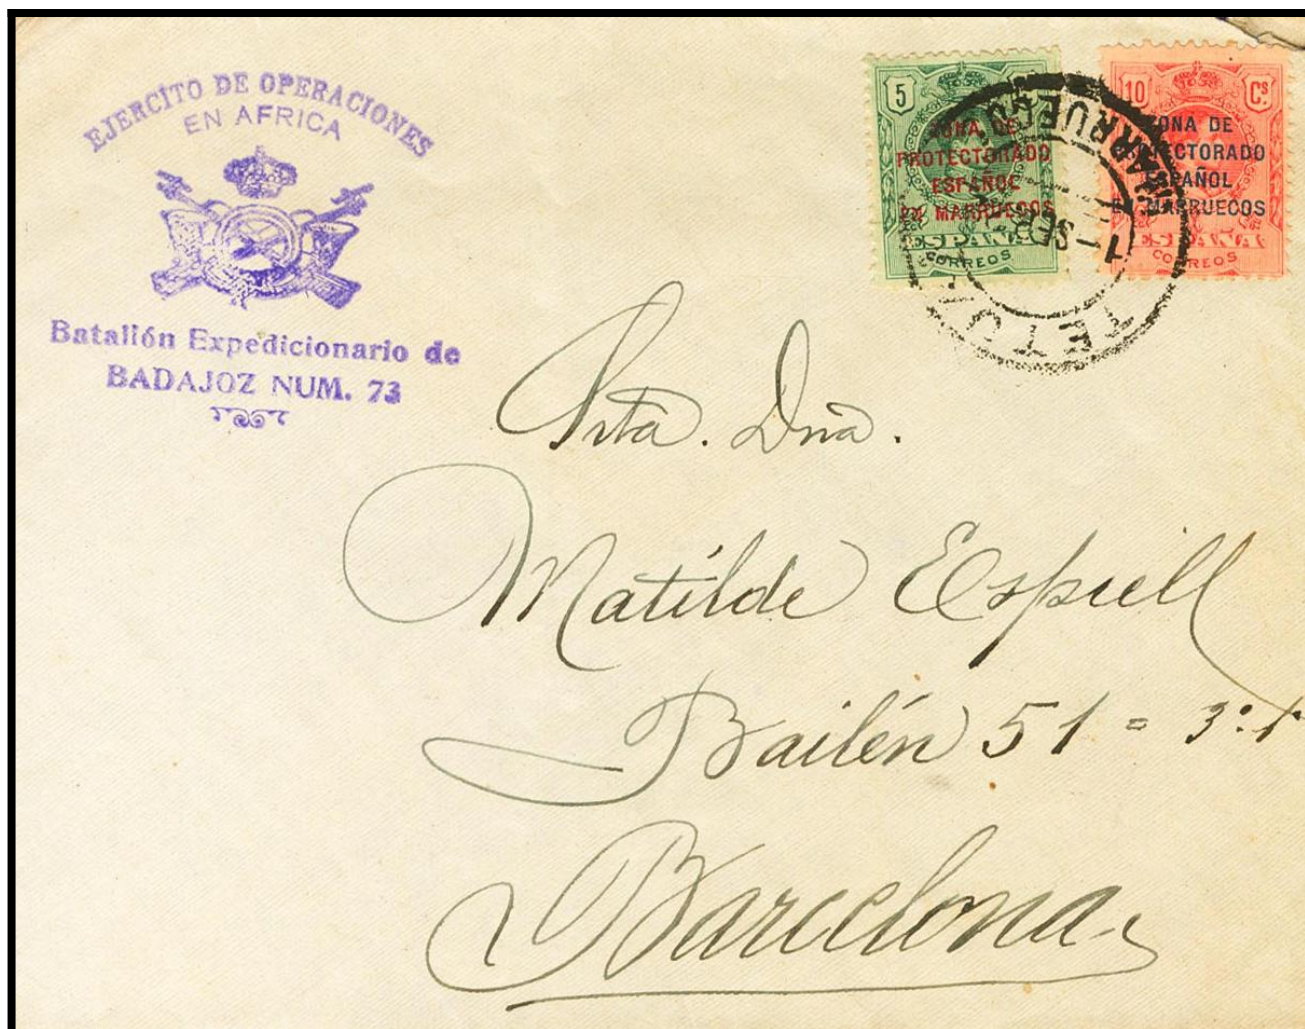 EJERCITO DE OPERACIONES
EN AFRICA
Batallón Expedicionario de
BADAJOZ NUM. 73
5
ZONA DE
PROTECTORADO
ESPAÑOL
EN MARRUECOS
ESPAÑA
CORREOS
10 Cs.
ZONA DE
PROTECTORADO
ESPAÑOL
EN MARRUECOS
ESPAÑA
CORREOS
MARRUECOS
1 SEP
TETUAN
Srta. Dña.
Matilde Espiell
Bailén 51 = 3º 1ª
Barcelona